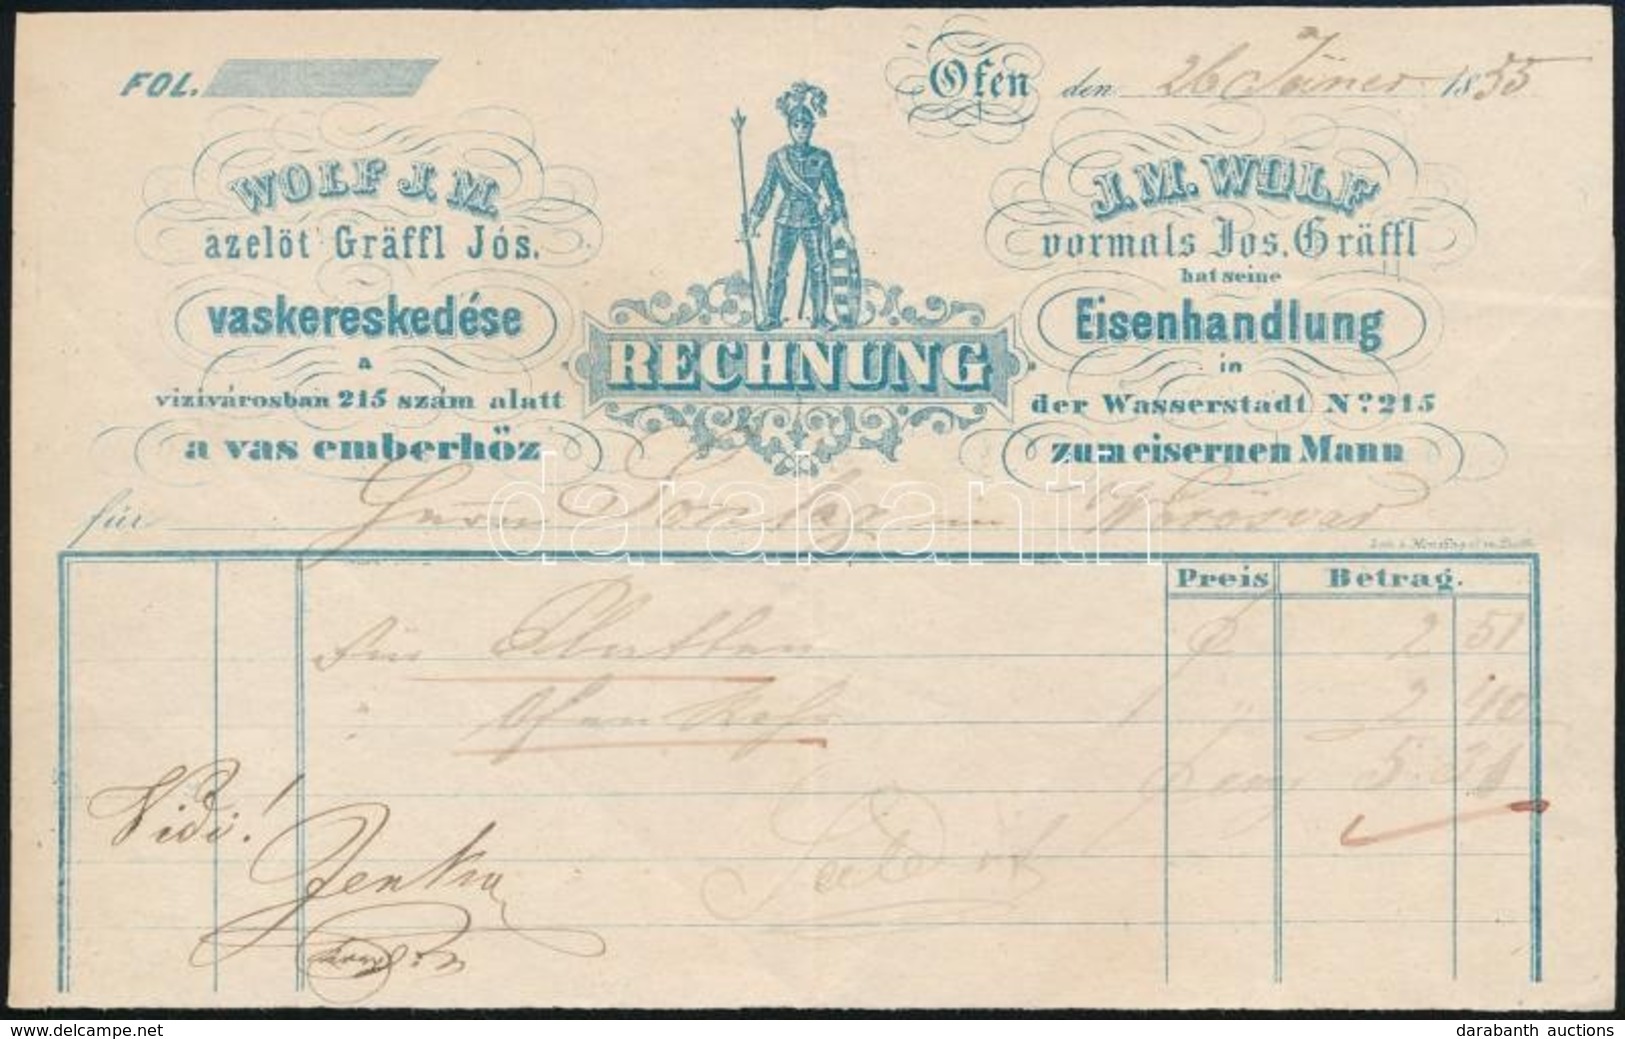 FOL.
Ofen den 26 Jäner 1855
WOLF J. M.
azelöt Gräffl Jós.
vaskereskedése
a
vizivárosban 215 szám alatt
a vas emberhöz
RECHNUNG
J. M. WOLF
vormals Jos. Gräffl
hat seine
Eisenhandlung
in
der Wasserstadt No. 215
zum eisernen Mann
für Herrn in Vörösvar
Preis Betrag.
für Platten 2 51
" Ofen Rohr 1 " 2 40
5
Vidi!
darabanth
delcampe.net
darabanth auctions